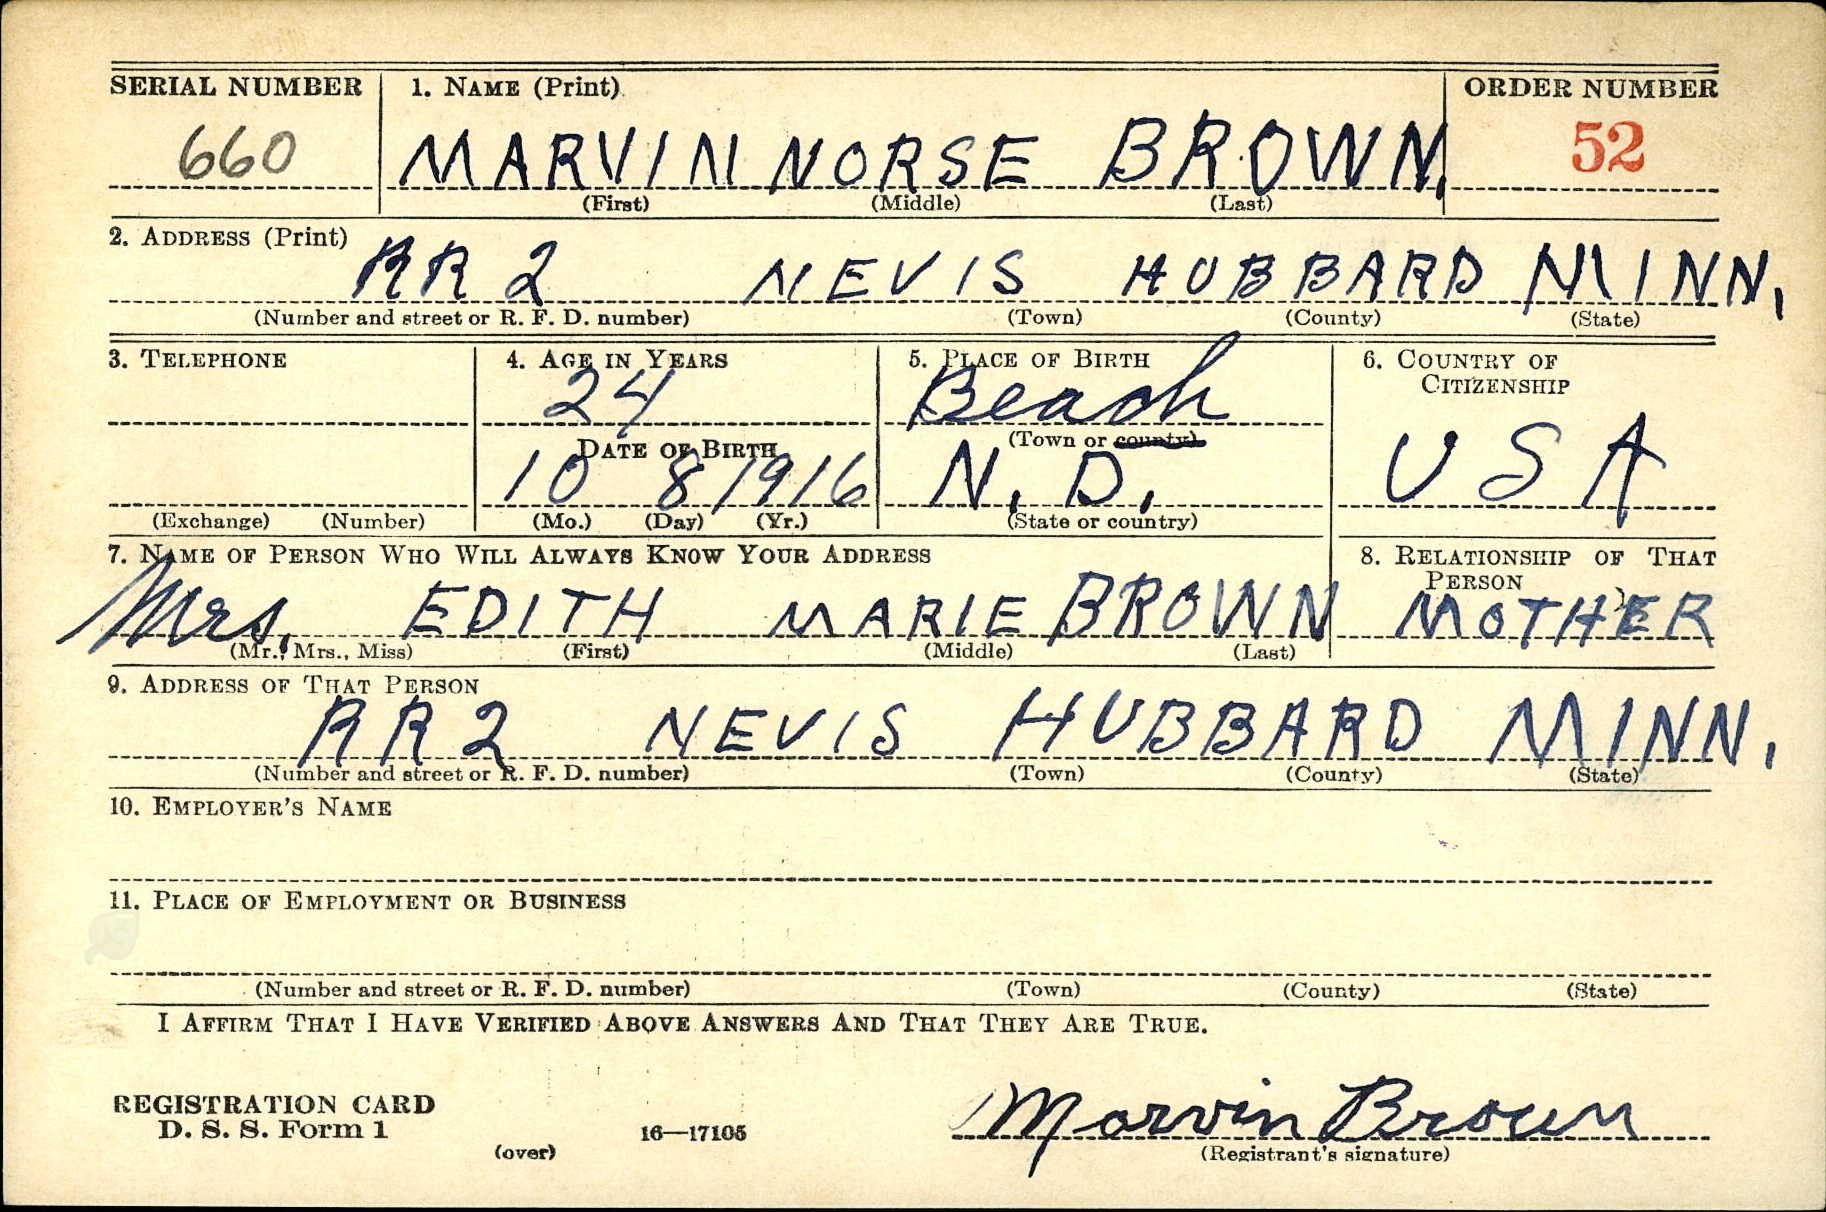 SERIAL NUMBER 1. NAME (Print) ORDER NUMBER
660 MARVIN NORSE BROWN. 52
(First) (Middle) (Last)
2. ADDRESS (Print)
RR 2 NEVIS HUBBARD MINN.
(Number and street or R. F. D. number) (Town) (County) (State)
3. TELEPHONE 4. AGE IN YEARS 5. PLACE OF BIRTH 6. COUNTRY OF CITIZENSHIP
24 Beach
DATE OF BIRTH (Town or county)
10 8 1916 N. D. U S A
(Exchange) (Number) (Mo.) (Day) (Yr.) (State or country)
7. NAME OF PERSON WHO WILL ALWAYS KNOW YOUR ADDRESS 8. RELATIONSHIP OF THAT PERSON
Mrs. EDITH MARIE BROWN MOTHER
(Mr., Mrs., Miss) (First) (Middle) (Last)
9. ADDRESS OF THAT PERSON
RR 2 NEVIS HUBBARD MINN.
(Number and street or R. F. D. number) (Town) (County) (State)
10. EMPLOYER'S NAME
11. PLACE OF EMPLOYMENT OR BUSINESS
(Number and street or R. F. D. number) (Town) (County) (State)
I AFFIRM THAT I HAVE VERIFIED ABOVE ANSWERS AND THAT THEY ARE TRUE.
REGISTRATION CARD
D. S. S. Form 1 16—17105 Marvin Brown
(over) (Registrant's signature)